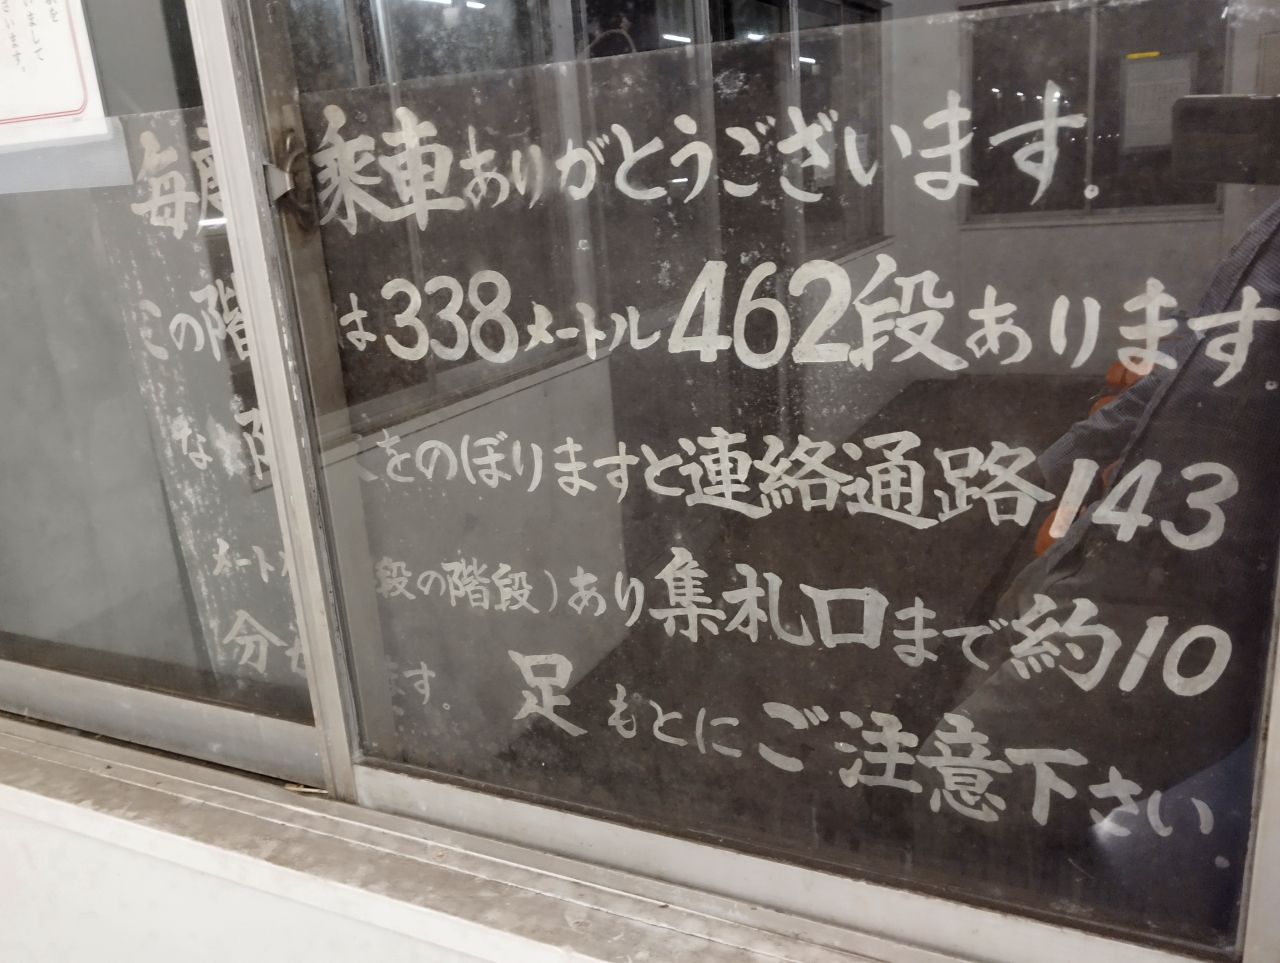 さいます。
毎度 乗車ありがとうございます。
この階 は338メートル462段あります。
な 階 をのぼりますと連絡通路143
メートル 段の階段)あり集札口まで約10
分 ます。 足もとにご注意下さい。